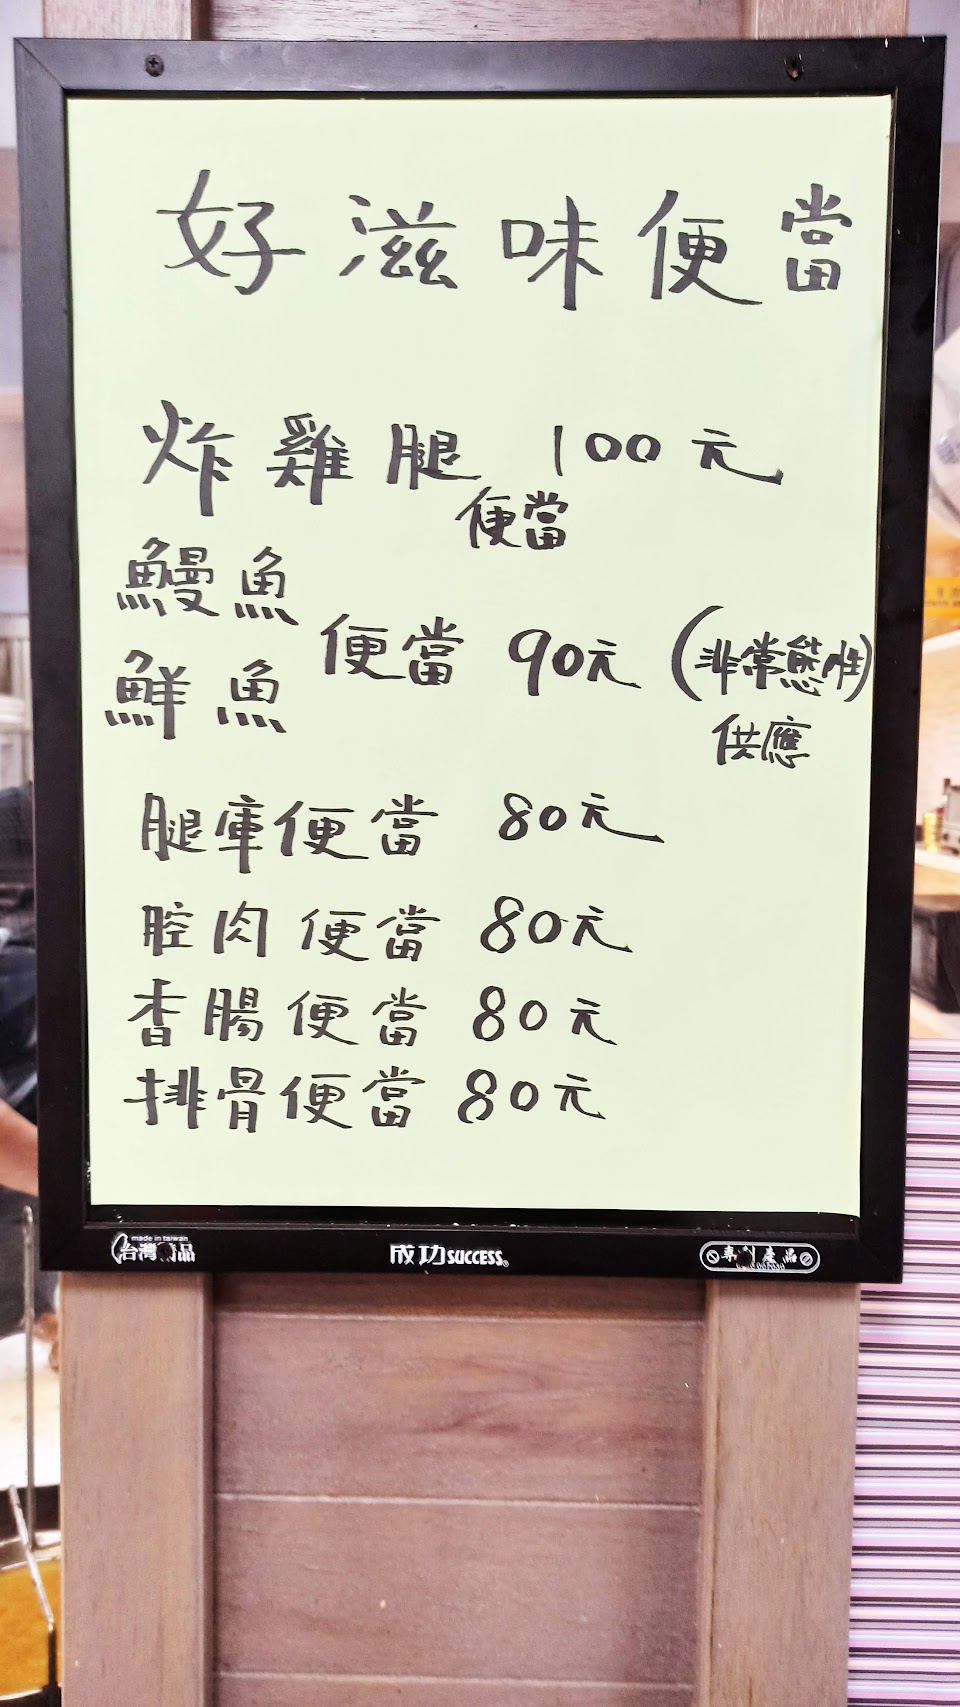 好滋味便當
炸雞腿 100元
便當
鰻魚
鮮魚
便當 90元 (非常態性)
供應
腿庫便當 80元
腔肉便當 80元
香腸便當 80元
排骨便當 80元
made in taiwan
台灣製品
成功SUCCESS®
專利產品